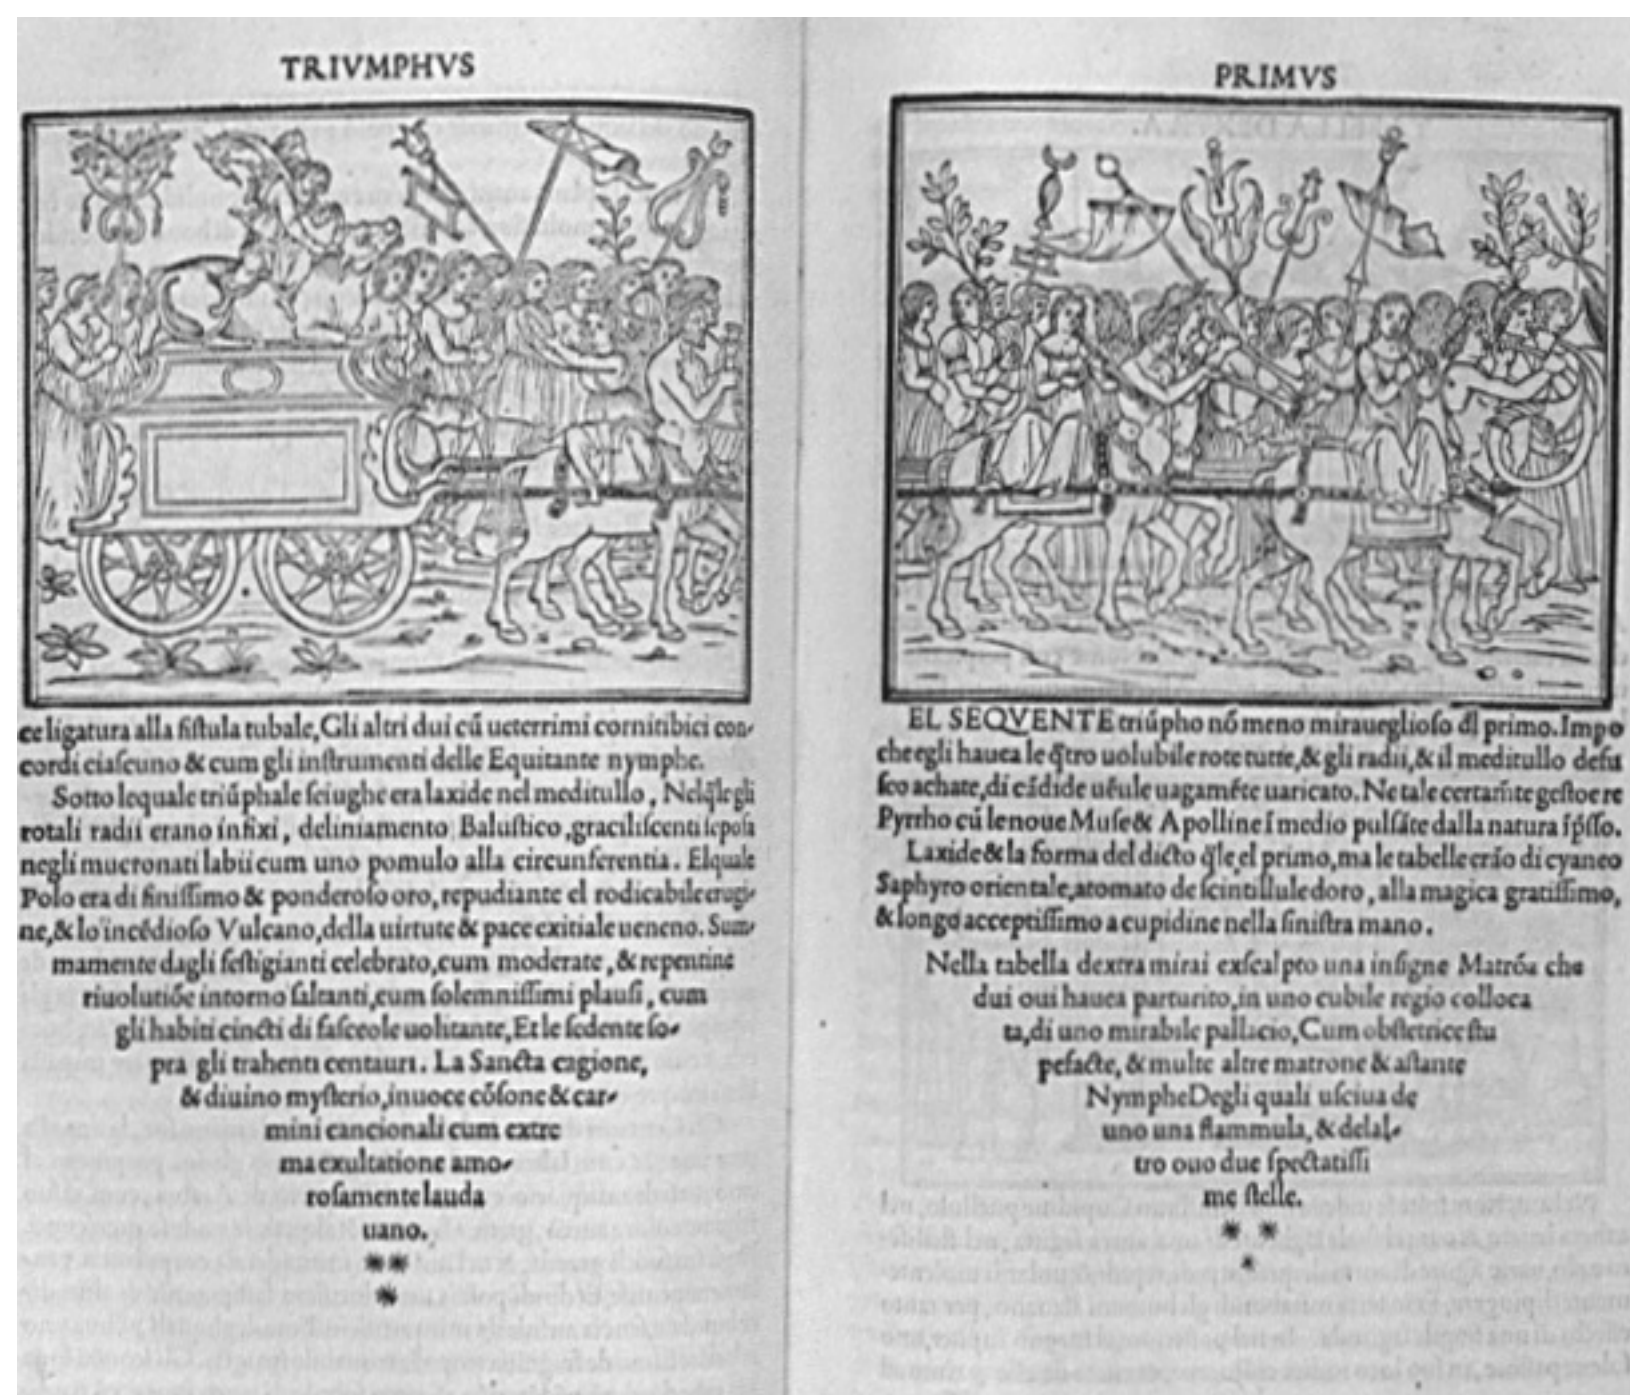 TRIVMPHVS
ce ligatura alla fistula tubale, Gli altri dui cū ueterrimi cornitibici con-
cordi ciascuno & cum gli instrumenti delle Equitante nymphe.
Sotto lequale triūphale seiughe era laxide nel meditullo, Nelq̄le gli
rotali radii erano infixi, deliniamento Balustico, graciliscenti seposa
negli mucronati labii cum uno pomulo alla circunferentia. Elquale
Polo era di finissimo & ponderoso oro, repudiante el rodicabile erugi-
ne, & lo'incēdioso Vulcano, della uirtute & pace exitiale ueneno. Sum-
mamente dagli festigianti celebrato, cum moderate, & repentine
riuolutiōe intorno saltanti, cum solemnissimi plausi, cum
gli habiti cincti di fasceole uolitante, Et le sedente so-
pra gli trahenti centauri. La Sancta cagione,
& diuino mysterio, inuoce cōsone & car-
mini cancionali cum extre
ma exultatione amo-
rosamente lauda
uano.
PRIMVS
EL SEQVENTE triūpho nō meno miraueglioso dl primo. Impo
che egli hauea le q̄tro uolubile rote tutte, & gli radii, & il meditullo defu
sco achate, di cādide uēule uagamēte uaricato. Ne tale certamte gestoe re
Pyrrho cū lenoue Muse & Apolline ī medio pulsāte dalla natura īpsso.
Laxide & la forma del dicto q̄le el primo, ma le tabelle erāo di cyaneo
Saphyro orientale, atomato de scintillule doro, alla magica gratissimo,
& longo acceptissimo a cupidine nella sinistra mano.
Nella tabella dextra mirai exscalpto una insigne Matrōa che
dui oui hauea parturito, in uno cubile regio colloca
ta, di uno mirabile pallacio, Cum obstetrice stu
pefacte, & multe altre matrone & astante
Nymphe Degli quali usciua de
uno una flammula, & delal-
tro ouo due spectatissi
me stelle.